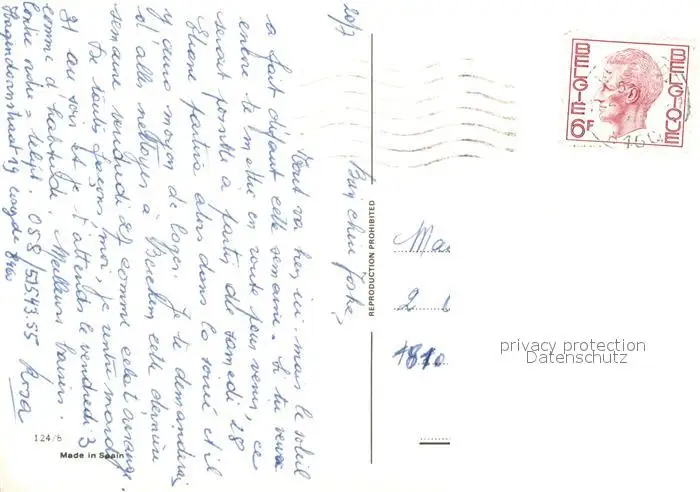 20/7
Bien chère Joske,
Tout va bien ici. mais le soleil
a fait défaut cette semaine. Si tu veux
encore te mettre en route pour venir, ce
serait possible à partir de samedi 28
partira alors dans la soirée et il
y aura moyen de loger. Je te demanderai
d'aller nettoyer à Berchem cette dernière
semaine vendredi 27 comme cela t'arrange.
De toutes façons, moi, je rentre mardi
31 au soir et je t'attends le vendredi 3
comme d'habitude. Meilleurs baisers.
notre téléph. 058/51543.55 Rosa
124/8
Made in Spain
REPRODUCTION PROHIBITED
BELGIE BELGIQUE
6F
Mad
2
1810
privacy protection
Datenschutz